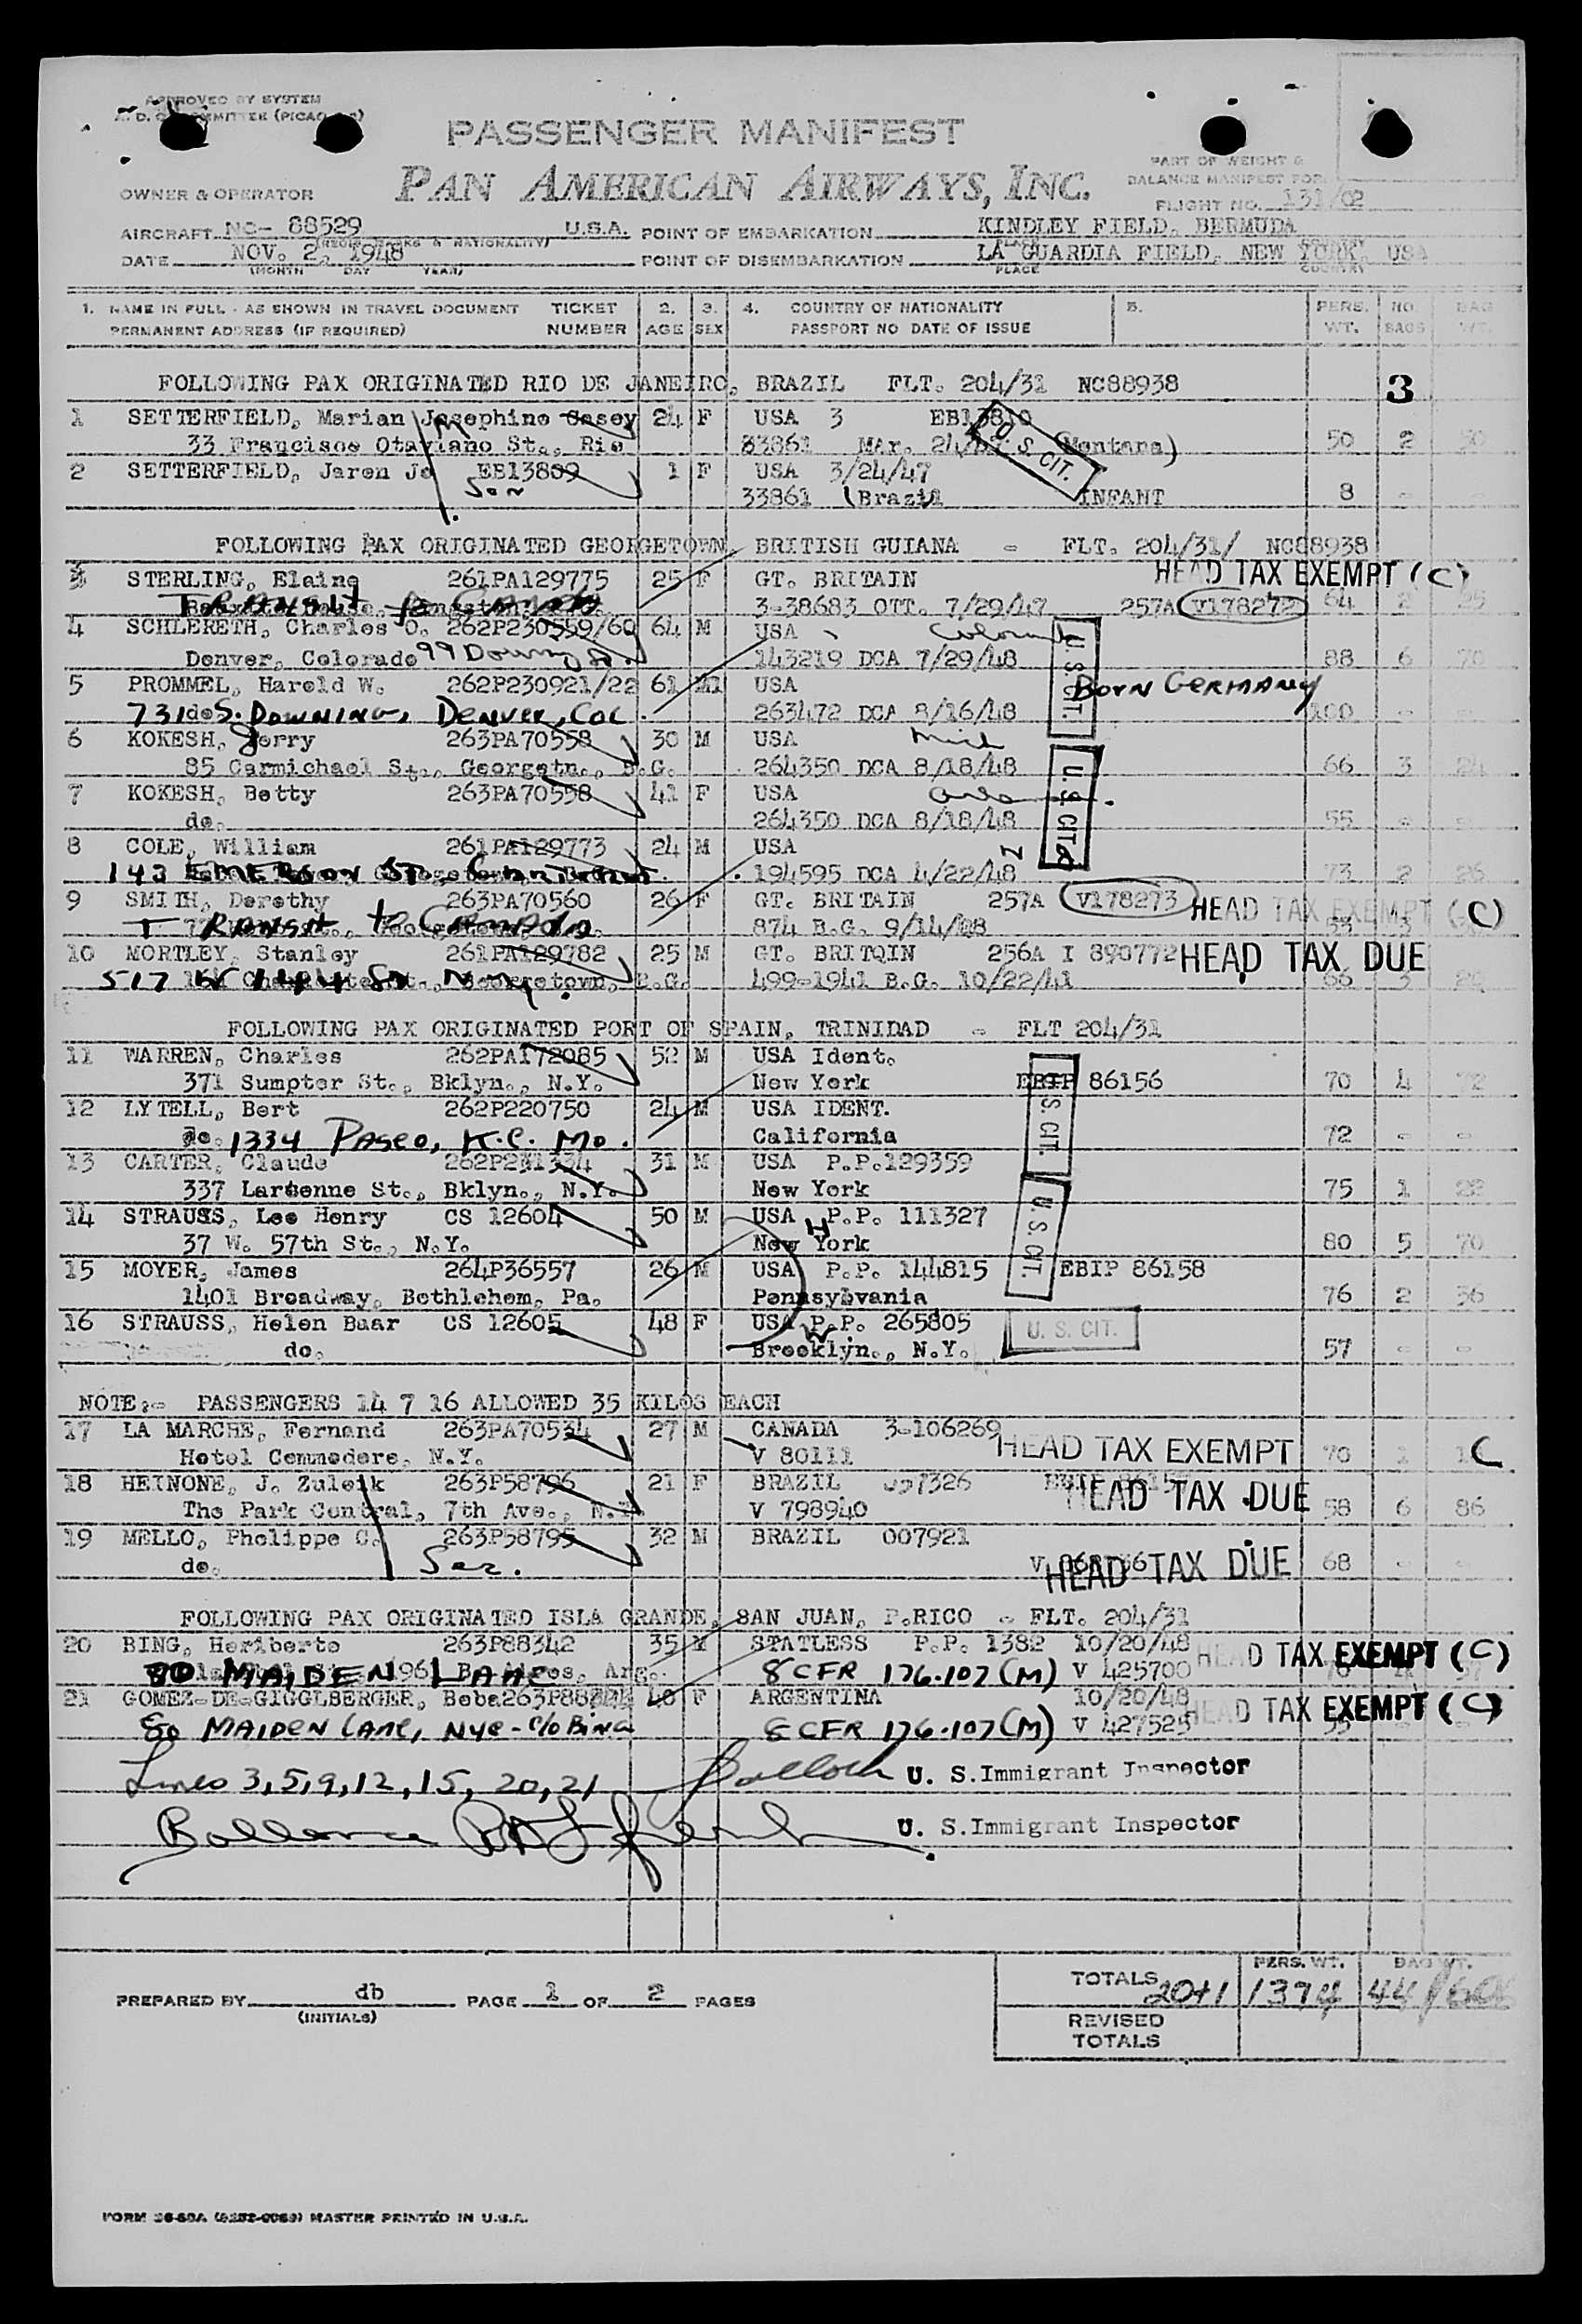 APPROVED BY SYSTEM
PASSENGER MANIFEST
PART OF WEIGHT &
BALANCE MANIFEST FOR
OWNER & OPERATOR PAN AMERICAN AIRWAYS, INC.
FLIGHT NO. 131/02
AIRCRAFT NC- 88529 U.S.A. POINT OF EMBARKATION KINDLEY FIELD, BERMUDA
DATE NOV. 2, 1948 POINT OF DISEMBARKATION LA GUARDIA FIELD, NEW YORK, USA
(MONTH DAY YEAR) PLACE COUNTRY
1. NAME IN FULL - AS SHOWN IN TRAVEL DOCUMENT TICKET 2. 3. 4. COUNTRY OF NATIONALITY 5. PERS. NO. BAG
PERMANENT ADDRESS (IF REQUIRED) NUMBER AGE SEX PASSPORT NO DATE OF ISSUE WT. BAGS WT.
FOLLOWING PAX ORIGINATED RIO DE JANEIRO, BRAZIL FLT. 204/31 NC88938 3
1 SETTERFIELD, Marian Josephine Casey 24 F USA 3 EB13810
33 Francisco Otaviano St., Rio 33861 Mar. 24/47 (Montana) 50 2 50
U. S. CIT.
2 SETTERFIELD, Jaren Jo EB13809 1 F USA 3/24/47
Son 33861 (Brazil INFANT 8 - -
FOLLOWING PAX ORIGINATED GEORGETOWN, BRITISH GUIANA - FLT. 204/31/ NC88938
3 STERLING, Elaine 261PA129775 25 F GT. BRITAIN HEAD TAX EXEMPT (C)
TRANSIT 3-38683 OTT. 7/29/47 257A V178272 64 2 25
4 SCHLERETH, Charles O. 262P230559/60 64 M USA
Denver, Colorado 99 Downing St. 143219 DCA 7/29/48 88 6 70
U. S. CIT.
5 PROMMEL, Harold W. 262P230921/22 61 M USA BORN GERMANY
731 do S. DOWNING, DENVER, COL. 263472 DCA 8/16/48 100 - -
6 KOKESH, Jerry 263PA70558 30 M USA Mich
85 Carmichael St., Georgetn., B.G. 264350 DCA 8/18/48 66 3 24
U. S. CIT.
7 KOKESH, Betty 263PA70558 41 F USA
do. 264350 DCA 8/18/48 55 - -
8 COLE, William 261PA129773 24 M USA
143 EMERSON ST. 194595 DCA 4/22/48 73 2 26
9 SMITH, Dorothy 263PA70560 26 F GT. BRITAIN 257A V178273 HEAD TAX EXEMPT (C)
TRANSIT to CANADA 874 B.G. 9/14/48 53 3
10 MORTLEY, Stanley 261PA129782 25 M GT. BRITQIN 256A I 890772 HEAD TAX DUE
517 W 144 St N.Y. 499-1941 B.G. 10/22/41 66 3 20
FOLLOWING PAX ORIGINATED PORT OF SPAIN, TRINIDAD - FLT 204/31
11 WARREN, Charles 262PA172085 52 M USA Ident.
371 Sumpter St., Bklyn., N.Y. New York EBIP 86156 70 4 72
12 LYTELL, Bert 262P220750 24 M USA IDENT.
do. 1334 PASEO, K.C. MO. California 72 - -
U. S. CIT.
13 CARTER, Claude 262P231334 31 M USA P.P.129359
337 Larsenne St., Bklyn., N.Y. New York 75 1 22
14 STRAUSS, Lee Henry CS 12604 50 M USA P.P. 111327
37 W. 57th St., N.Y. H New York 80 5 70
U. S. CIT.
15 MOYER, James 264P36557 26 M USA P.P. 144815 EBIP 86158
1401 Broadway, Bethlehem, Pa. Pennsylvania 76 2 36
16 STRAUSS, Helen Baar CS 12605 48 F USA P.P. 265805
do. W Brooklyn., N.Y. U. S. CIT. 57 - -
NOTE:- PASSENGERS 14 7 16 ALLOWED 35 KILOS EACH
17 LA MARCHE, Fernand 263PA70534 27 M CANADA 3-106269
Hotel Commodore, N.Y. V 80111 HEAD TAX EXEMPT 70 1 1 C
18 HEINONE, J. Zuleik 263P58796 21 F BRAZIL 007326
The Park Central, 7th Ave., N.Y. V 798940 HEAD TAX DUE 58 6 86
19 MELLO, Phelippe C. 263P58795 32 M BRAZIL 007921
do. Sec. HEAD TAX DUE 68 - -
FOLLOWING PAX ORIGINATED ISLA GRANDE, SAN JUAN, P.RICO - FLT. 204/31
20 BING, Heriberto 263P88342 35 M STATLESS P.P. 1382 10/20/48 HEAD TAX EXEMPT (C)
80 MAIDEN LANE 8 CFR 176.107 (M) V 425700
21 GOMEZ-DE-GIGGLBERGER, Beba 40 F ARGENTINA 10/20/48 HEAD TAX EXEMPT (C)
80 MAIDEN LANE, NYC - c/o BING 8 CFR 176.107 (M) V 427525 55 - -
Lines 3, 5, 9, 12, 15, 20, 21 U. S. Immigrant Inspector
U. S. Immigrant Inspector
PREPARED BY db PAGE 1 OF 2 PAGES
(INITIALS)
PERS. WT. BAG WT.
TOTALS 20+1 1394 44
REVISED
TOTALS
FORM MASTER PRINTED IN U.S.A.